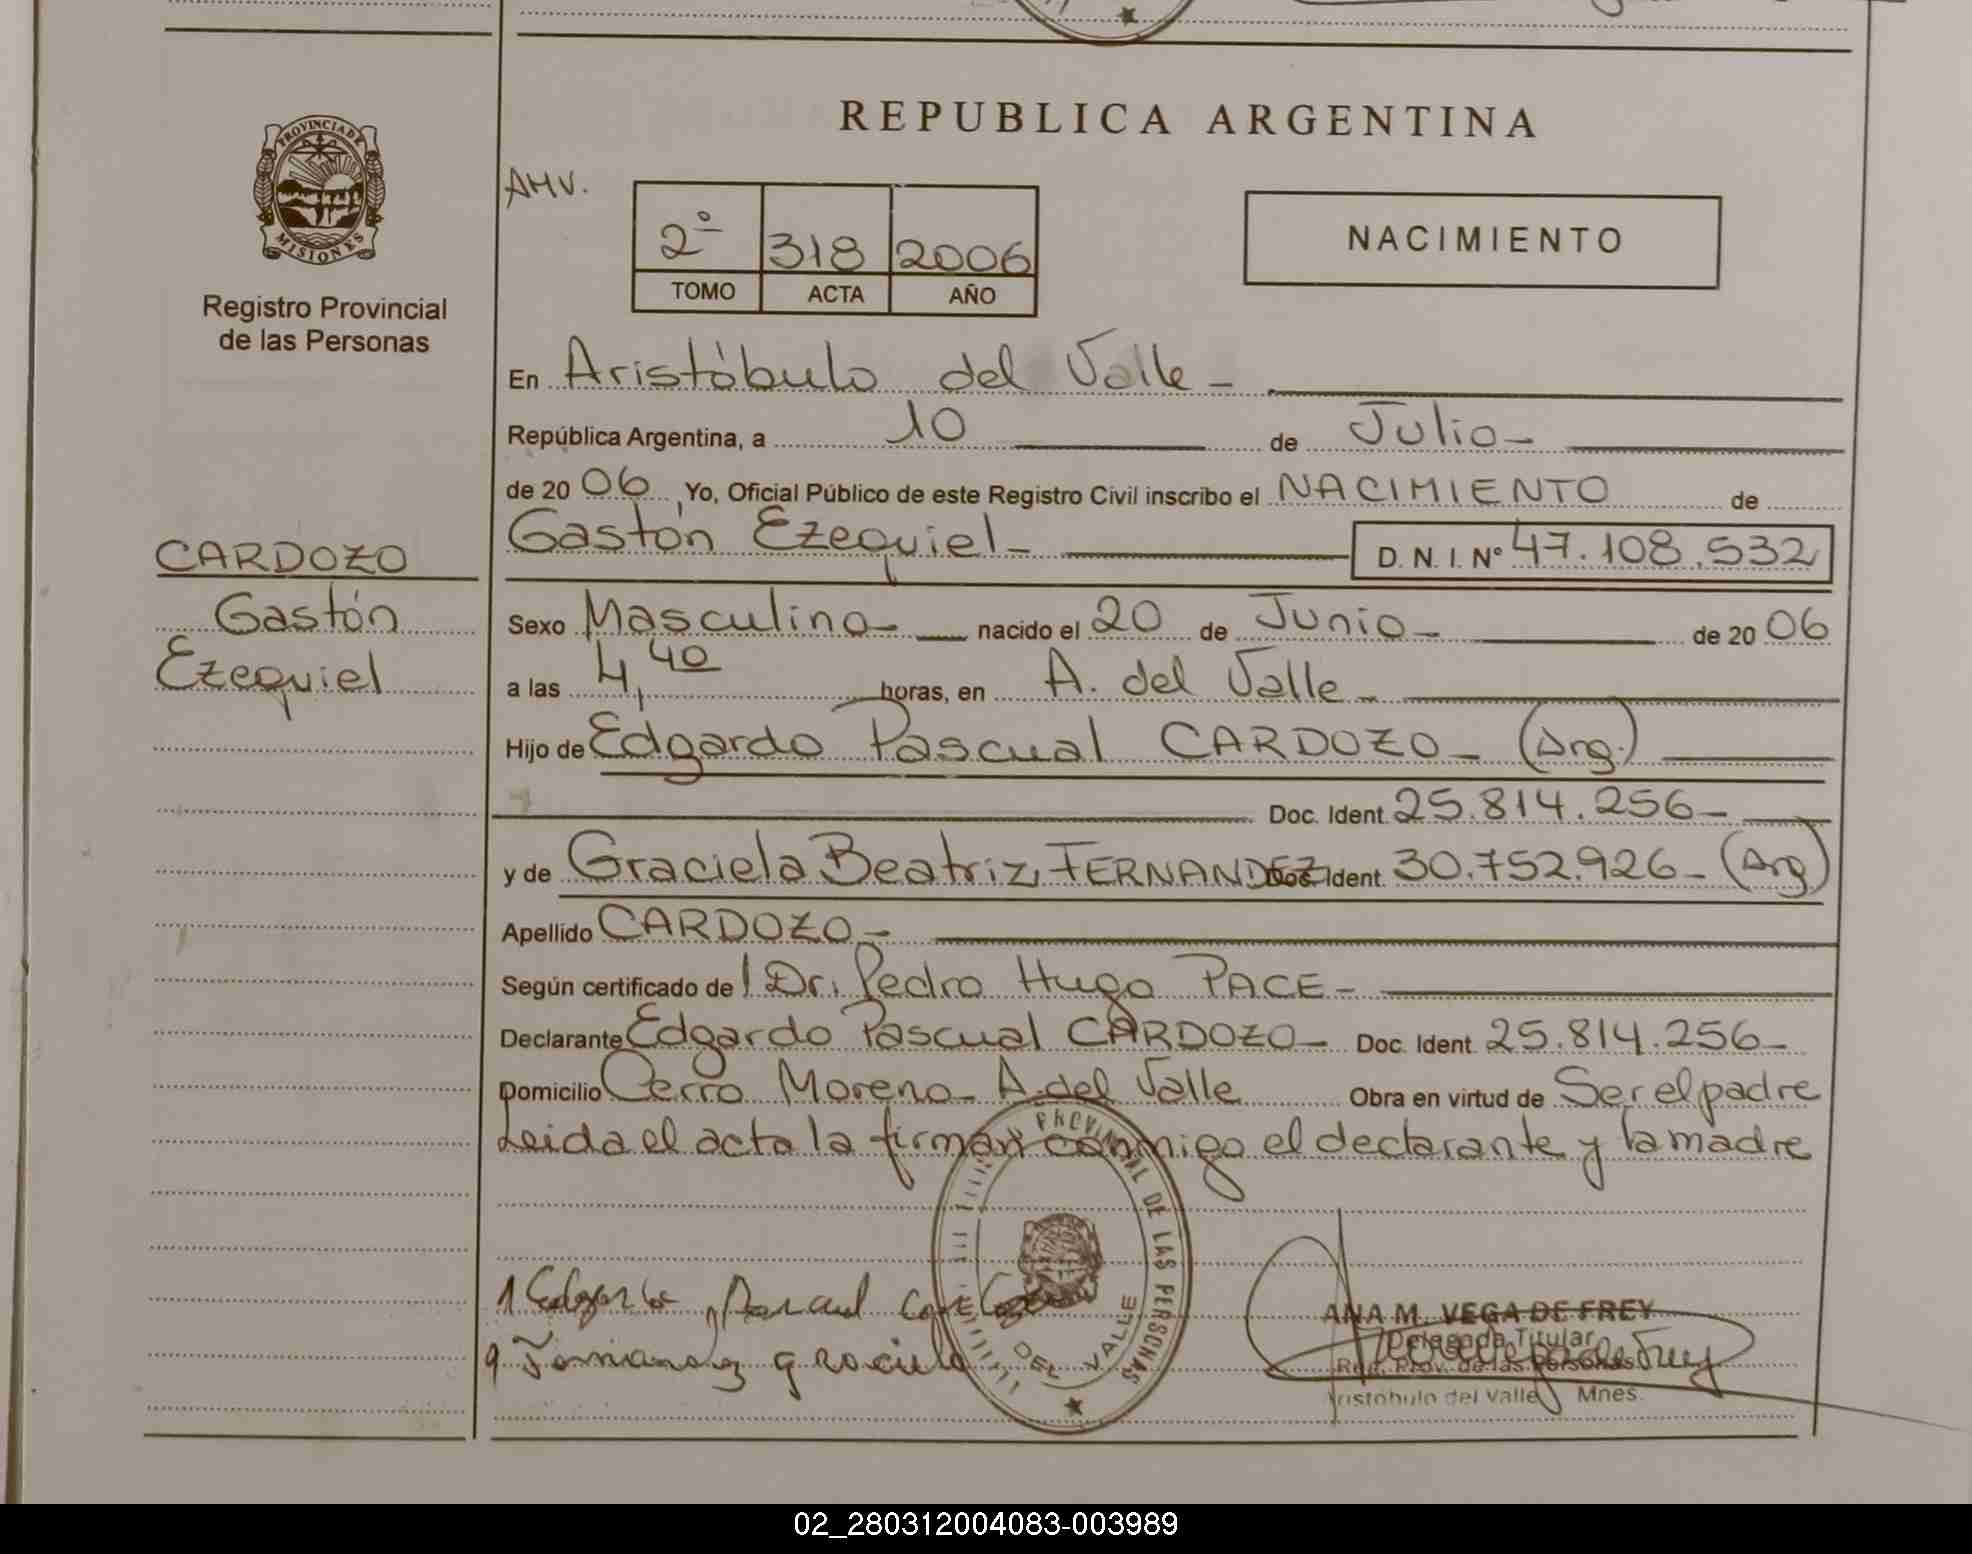 REPUBLICA ARGENTINA
PROVINCIA DE
MISIONES
Registro Provincial
de las Personas
AMV.
2º 318 2006
TOMO ACTA AÑO
NACIMIENTO
En Aristóbulo del Valle -
República Argentina, a 10 de Julio -
de 20 06 Yo, Oficial Público de este Registro Civil inscribo el NACIMIENTO de
Gastón Ezequiel - D. N. I. Nº 47.108.532
CARDOZO
Gastón
Ezequiel
Sexo Masculino - nacido el 20 de Junio - de 20 06
a las 4,40 horas, en A. del Valle -
Hijo de Edgardo Pascual CARDOZO - (Arg.)
Doc. Ident. 25.814.256 -
y de Graciela Beatriz FERNANDEZ Doc. Ident. 30.752.926 - (Arg)
Apellido CARDOZO -
Según certificado de l Dr. Pedro Hugo PACE -
Declarante Edgardo Pascual CARDOZO - Doc. Ident. 25.814.256 -
Domicilio Cerro Moreno - A. del Valle Obra en virtud de Ser el padre
Leida el acta la firman conmigo el declarante y la madre
PROVINCIAL DE LAS PERSONAS
DEL VALLE
Fernandez graciela
ANA M. VEGA DE FREY
Delegada Titular
Reg. Prov. de las Personas
Aristóbulo del Valle Mnes.
02_280312004083-003989